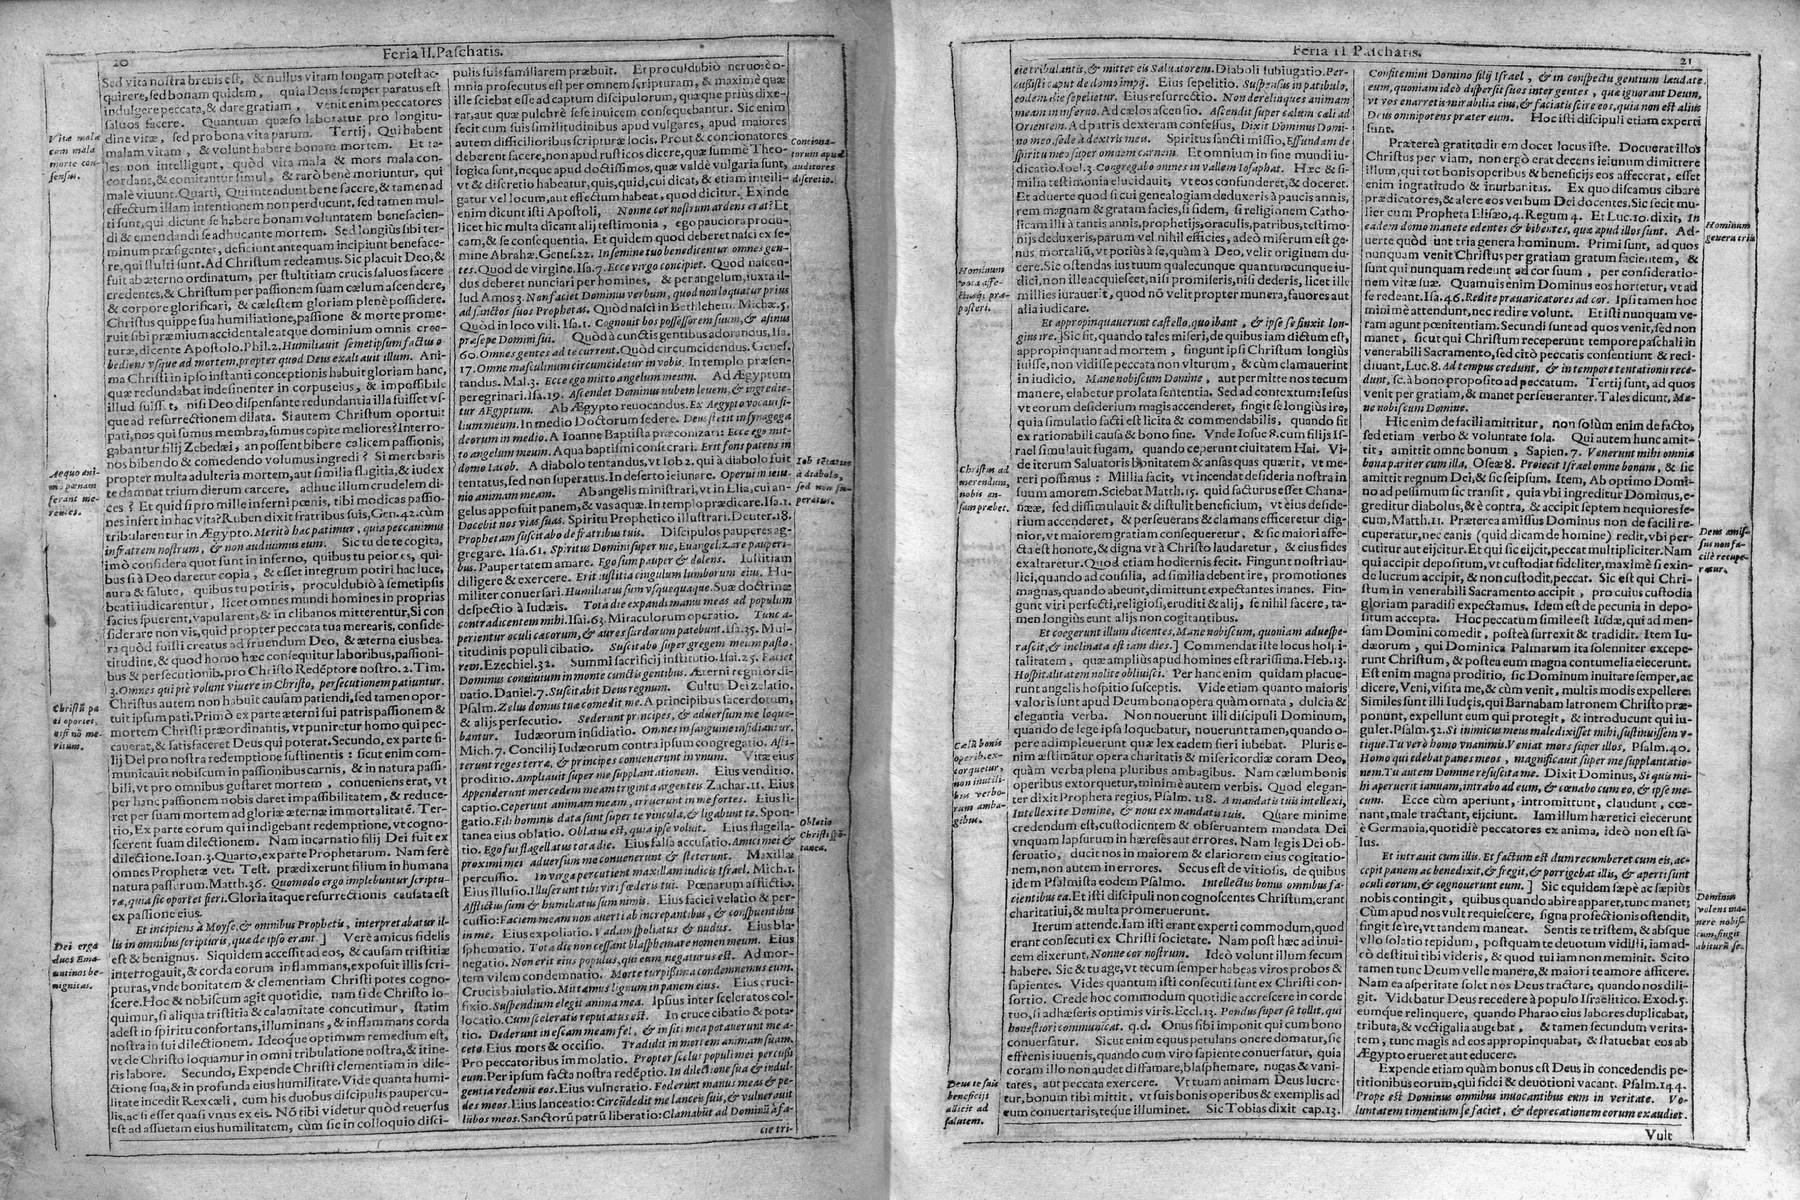 20
Feria II. Paschatis.
Sed vita nostra breuis est, & nullus vitam longam potest ac-
quirere, sed bonam quidem, quia Deus semper paratus est
indulgere peccata, & dare gratiam, venit enim peccatores
saluos facere. Quantum quæso laboratur pro longitu-
dine vitæ, sed pro bona vita parum. Tertij, Qui habent
malam vitam, & volunt habere bonam mortem. Et ta-
les non intelligunt, quòd vita mala & mors mala con-
cordant, & comitantur simul, & rarò bene moriuntur, qui
malè viuunt. Quarti, Qui intendunt bene facere, & tamen ad
effectum illam intentionem non perducunt, sed tamen mul-
ti sunt, qui dicunt se habere bonam voluntatem benefacien-
di & emendandi se adhuc ante mortem. Sed longiùs sibi ter-
minum præfigentes, deficiunt antequam incipiunt beneface-
re, qui stulti sunt. Ad Christum redeamus. Sic placuit Deo, &
fuit ab æterno ordinatum, per stultitiam crucis saluos facere
credentes, & Christum per passionem suam cælum ascendere,
& corpore glorificari, & cælestem gloriam plenè possidere.
Christus quippe sua humiliatione, passione & morte prome-
ruit sibi præmium accidentale atque dominium omnis crea-
turæ, dicente Apostolo. Phil. 2. Humiliauit semetipsum factus o-
bediens vsque ad mortem, propter quod Deus exaltauit illum. Ani-
ma Christi in ipso instanti conceptionis habuit gloriam hanc,
quæ redundabat indesinenter in corpus eius, & impossibile
illud fuisset, nisi Deo dispensante redundantia illa fuisset vs-
que ad resurrectionem dilata. Si autem Christum oportuit
pati, nos qui sumus membra, sumus capite meliores? Interro-
gabantur filij Zebedæi, an possent bibere calicem passionis,
nos bibendo & comedendo volumus ingredi? Si merearis
propter multa adulteria mortem, aut similia flagitia, & iudex
te damnat trium dierum carcere, adhuc illum crudelem di-
ces? Et quid si pro mille inferni pœnis, tibi modicas passio-
nes infert in hac vita? Ruben dixit fratribus suis, Gen. 42. cùm
tribularentur in Ægypto. Meritò hæc patimur, quia peccauimus
in fratrem nostrum, & non audiuimus eum. Sic tu de te cogita,
imò considera quot sunt in inferno, quibus tu peior es, qui-
bus si à Deo daretur copia, & esset integrum potiri hac luce,
aura & salute, quibus tu potiris, proculdubiò à semetipsis
beati iudicarentur, licet omnes mundi homines in proprias
facies spuerent, vapularent, & in clibanos mitterentur. Si con
siderare non vis, quid propter peccata tua merearis, conside-
ra quòd fuisti creatus ad fruendum Deo, & æterna eius bea-
titudine, & quod homo hæc consequitur laboribus, passioni-
bus & persecutionib. pro Christo Redẽptore nostro. 2. Tim.
3. Omnes qui piè volunt viuere in Christo, persecutionem patiuntur.
Christus autem non habuit causam patiendi, sed tamen opor-
tuit ipsum pati. Primò ex parte æterni sui patris passionem &
mortem Christi præordinantis, vt puniretur homo qui pec-
cauerat, & satisfaceret Deus qui poterat. Secundo, ex parte fi-
lij Dei pro nostra redemptione sustinentis: sicut enim com-
municauit nobiscum in passionibus carnis, & in natura passi-
bili, vt pro omnibus gustaret mortem, conueniens erat, vt
per hanc passionem nobis daret impassibilitatem, & reduce-
ret per suam mortem ad gloriæ æternæ immortalitatẽ. Ter-
tio, Ex parte eorum qui indigebant redemptione, vt cogno-
scerent suam dilectionem. Nam incarnatio filij Dei fuit ex
dilectione. Ioan. 3. Quarto, ex parte Prophetarum. Nam ferè
omnes Prophetæ vet. Test. prædixerunt filium in humana
natura passurum. Matth. 36. Quomodo ergo implebuntur scriptu-
ræ, quia sic oportet fieri. Gloria itaque resurrectionis causata est
ex passione eius.
Et incipiens à Moyse, & omnibus Prophetis, interpretabatur il-
lis in omnibus scripturis, quæ de ipso erant.] Verè amicus fidelis
est & benignus. Siquidem accessit ad eos, & causam tristitiæ
interrogauit, & corda eorum inflammans, exposuit illis scri-
pturas, vnde bonitatem & clementiam Christi potes cogno-
scere. Hoc & nobiscum agit quotidie, nam si de Christo lo-
quimur, si aliqua tristitia & calamitate concutimur, statim
adest in spiritu confortans, illuminans, & inflammans corda
nostra in sui dilectionem. Ideoque optimum remedium est,
vt de Christo loquamur in omni tribulatione nostra, & itine-
ris labore. Secundo, Expende Christi clementiam in dile-
ctione sua, & in profunda eius humilitate. Vide quanta humi-
litate incedit Rex cæli, cum his duobus discipulis paupercu-
lis, ac si esset quasi vnus ex eis. Nõ tibi videtur quòd reuersus
est ad assuetam eius humilitatem, cùm sic in colloquio disci-
Vitæ malæ
cum mala
morte con-
sensus.
Aequo ani-
mo pœnam
ferant me-
rentes.
Christũ pa
ti oportet,
nisi nõ me-
ritum.
Dei erga
duos Ema-
untinos be-
nignitas.
pulis suis familiarem præbuit. Et proculdubiò neruosè o-
mnia prosecutus est per omnem scripturam, & maximè quæ
ille sciebat esse ad captum discipulorum, quæque prius dixe-
rat, aut quæ pulchrè sese inuicem consequebantur. Sic enim
fecit cum suis similitudinibus apud vulgares, apud maiores
autem difficilioribus scripturæ locis. Prout & concionatores
deberent facere, non apud rusticos dicere, quæ summè Theo-
logica sunt, neque apud doctissimos, quæ valdè vulgaria sunt,
vt & discretio habeatur, quis, quid, cui dicat, & etiam intelli-
gatur vel locum, aut effectum habeat, quod dicitur. Exinde
enim dicunt isti Apostoli, Nonne cor nostrum ardens erat? Et
licet hic multa dicant alij testimonia, ego pauciora produ-
cam, & se consequentia. Et quidem quod deberet nasci ex se-
mine Abrahæ. Genes. 22. In semine tuo benedicentur omnes gen-
tes. Quod de virgine. Isa. 7. Ecce virgo concipiet. Quòd nascen-
dus deberet nunciari per homines, & per angelum, iuxta il-
lud Amos 3. Non faciet Dominus verbum, quod non loquatur prius
ad sanctos suos Prophetas. Quòd nasci in Bethlehem. Michæ. 5.
Quòd in loco vili. Isa. 1. Cognouit bos possessorem suum, & asinus
præsepe Domini sui. Quòd à cunctis gentibus adorandus. Isa.
60. Omnes gentes ad te current. Quòd circumcidendus. Genes.
17. Omne masculinum circumcidetur in vobis. In templo præsen-
tandus. Mal. 3. Ecce ego mitto angelum meum. Ad Ægyptum
peregrinari. Isa. 19. Ascendet Dominus nubem leuem, & ingredie-
tur Ægyptum. Ab Ægypto reuocandus. Ex Aegypto vocaui fi-
lium meum. In medio Doctorum sedere. Deus stetit in synagoga
deorum in medio. A Ioanne Baptista præconizari: Ecce ego mit-
to angelum meum. Aqua baptismi consecrari. Erit fons patens in
domo Iacob. A diabolo tentandus, vt Iob 2. qui à diabolo fuit
tentatus, sed non superatus. In deserto ieiunare. Operui in ieiu-
nio animam meam. Ab angelis ministrari, vt in Elia, cui an-
gelus apposuit panem, & vas aquæ. In templo prædicare. Isa. 1.
Docebit nos vias suas. Spiritu Prophetico illustrari. Deuter. 18.
Prophetam suscitabo de fratribus tuis. Discipulos pauperes ag-
gregare. Isa. 61. Spiritus Domini super me, Euangelizare pauperi-
bus. Paupertatem amare. Ego sum pauper & dolens. Iustitiam
diligere & exercere. Erit iustitia cingulum lumborum eius. Hu-
militer conuersari. Humiliatus sum vsquequaque. Suæ doctrinæ
despectio à Iudæis. Tota die expandi manu meas ad populum
contradicentem mihi. Isai. 63. Miraculorum operatio. Tunc a-
perientur oculi cæcorum, & aures surdorum patebunt. Isa. 35. Mul-
titudinis populi cibatio. Suscitabo super gregem meum pasto-
rem. Ezechiel. 32. Summi sacrificij institutio. Isai. 25. Faciet
Dominus conuiuium in monte cunctis gentibus. Æterni regni ordi-
natio. Daniel. 7. Suscitabit Deus regnum. Cultus Dei zelatio.
Psalm. Zelus domus tuæ comedit me. A principibus sacerdotum,
& alijs persecutio. Sederunt principes, & aduersum me loque-
bantur. Iudæorum insidiatio. Omnes in sanguine insidiantur.
Mich. 7. Concilij Iudæorum contra ipsum congregatio. Asti-
terunt reges terræ, & principes conuenerunt in vnum. Vitæ eius
proditio. Ampliauit super me supplantationem. Eius venditio.
Appenderunt mercedem meam triginta argenteis Zachar. 11. Eius
captio. Ceperunt animam meam, irruerunt in me fortes. Eius li-
gatio. Fili hominis data sunt super te vincula, & ligabunt te. Spon-
tanea eius oblatio. Oblatus est, quia ipse voluit. Eius flagella-
tio. Ego fui flagellatus tota die. Eius falsa accusatio. Amici mei &
proximi mei aduersum me conuenerunt & steterunt. Maxillæ
percussio. In virga percutient maxillam iudicis Israel. Mich. 1.
Eius illusio. Illuserunt tibi viri fœderis tui. Pœnarum afflictio.
Afflictus sum & humiliatus sum nimis. Eius faciei velatio & per-
cussio: Faciem meam non auerti ab increpantibus, & conspuentibus
in me. Eius expoliatio. Vadam spoliatus & nudus. Eius bla-
sphematio. Tota die non cessant blasphemare nomen meum. Eius
negatio. Non erit eius populus, qui eum negaturus est. Ad mor-
tem vilem condemnatio. Morte turpissima condemnemus eum.
Crucis baiulatio. Mittamus lignum in panem eius. Eius cruci-
fixio. Suspendium elegit anima mea. Ipsius inter sceleratos col-
locatio. Cum sceleratis reputatus est. In cruce cibatio & pota-
tio. Dederunt in escam meam fel, & in siti mea potauerunt me a-
ceto. Eius mors & occisio. Tradidit in mortem animam suam.
Pro peccatoribus immolatio. Propter scelus populi mei percussi
eum. Per ipsum facta nostra redẽptio. In dilectione sua & indul-
gentia redemit eos. Eius vulneratio. Foderunt manus meas & pe-
des meos. Eius lanceatio: Circũdedit me lanceis suis, & vulnerauit
lũbos meos. Sanctorũ patrũ liberatio: Clamabũt ad Dominũ à fa-
cie tri-
Conciona-
torum apud
auditores
discretio.
Iob tẽtatus
à diabolo,
sed non su-
peratus.
Oblatio
Christi spõ-
tanea.
Feria II. Paschatis.
21
cie tribulantis, & mittet eis Saluatorem. Diaboli subiugatio. Per-
cussisti caput de domo impij. Eius sepelitio. Suspensus in patibulo,
eodem die sepelietur. Eius resurrectio. Non derelinques animam
meam in inferno. Ad cælos ascensio. Ascendit super cælum cæli ad
Orientem. Ad patris dexteram consessus, Dixit Dominus Domi-
no meo, sede à dextris meis. Spiritus sancti missio, Effundam de
spiritu meo super omnem carnem. Et omnium in fine mundi iu-
dicatio. Ioel. 3. Congregabo omnes in vallem Iosaphat. Hæc & si-
milia testimonia elucidauit, vt eos confunderet, & doceret.
Et aduerte quod si cui genealogiam deduxeris à paucis annis,
rem magnam & gratam facies, si fidem, si religionem Catho-
licam illi à tantis annis, prophetijs, oraculis, patribus, testimo-
nijs deduxeris, parum vel nihil efficies, adeò miserum est ge-
nus mortaliũ, vt potiùs à se, quàm à Deo, velit originem du-
cere. Sic ostendas ius tuum qualecunque quantumcunque iu-
dici, non ille acquiescet, nisi promiseris, nisi dederis, licet ille
millies iurauerit, quod nõ velit propter munera, fauores aut
alia iudicare.
Et appropinquauerunt castello, quo ibant, & ipse se finxit lon-
gius ire.] Sic fit, quando tales miseri, de quibus iam dictum est,
appropinquant ad mortem, fingunt ipsi Christum longiùs
iuisse, non vidisse peccata non vlturum, & cùm clamauerint
in iudicio, Mane nobiscum Domine, aut permitte nos tecum
manere, elabetur prolata sententia. Sed ad contextum: Iesus
vt eorum desiderium magis accenderet, fingit se longiùs ire,
quia simulatio facti est licita & commendabilis, quando fit
ex rationabili causa & bono fine. Vnde Iosue 8. cum filijs Is-
rael simulauit fugam, quando ceperunt ciuitatem Hai. Vi-
de iterum Saluatoris bonitatem & ansas quas quærit, vt me-
reri possimus: Millia facit, vt incendat desideria nostra in
suum amorem. Sciebat Matth. 15. quid facturus esset Chana-
næ, sed dissimulauit & distulit beneficium, vt eius deside-
rium accenderet, & perseuerans & clamans efficeretur dig-
nior, vt maiorem gratiam consequeretur, & sic maiori affe-
cta est honore, & digna vt à Christo laudaretur, & eius fides
exaltaretur. Quod etiam hodie sic fecit. Fingunt nostri au-
lici, quando ad consilia, ad similia debent ire, promotiones
magnas, quando abeunt, dimittunt expectantes inanes. Fin-
gunt viri perfecti, religiosi, eruditi & alij, se nihil facere, ta-
men longiùs eunt alijs non cogitantibus.
Et coegerunt illum dicentes, Mane nobiscum, quoniam aduespe-
rascit, & inclinata est iam dies.] Commendat iste locus hospi-
talitatem, quæ ampliùs apud homines est rarissima. Heb. 13.
Hospitalitatem nolite obliuisci. Per hanc enim quidam placue-
runt angelis hospitio susceptis. Vide etiam quanto maioris
valoris sunt apud Deum bona opera quàm ornata, dulcia &
elegantia verba. Non nouerunt illi discipuli Dominum,
quando de lege ipsa loquebatur, nouerunt tamen, quando o-
pere adimpleuerunt quæ lex eadem fieri iubebat. Pluris e-
nim æstimãtur opera charitatis & misericordiæ coram Deo,
quàm verba plena pluribus ambagibus. Nam cælum bonis
operibus extorquetur, minimè autem verbis. Quod elegan-
ter dixit Propheta regius, Psalm. 118. A mandatis tuis intellexi,
Intellexi te Domine, & noui ex mandatis tuis. Quare minime
credendum est, custodientem & obseruantem mandata Dei
vnquam lapsurum in hæreses aut errores. Nam legis Dei ob-
seruatio, ducit nos in maiorem & clariorem eius cogitatio-
nem, non autem in errores. Secus est de vitiosis, de quibus
idem Psalmista eodem Psalmo. Intellectus bonus omnibus fa-
cientibus eã. Et isti discipuli non cognoscentes Christum, erant
charitatiui, & multa promeruerunt.
Iterum attende. Iam isti erant experti commodum, quod
erant consecuti ex Christi societate. Nam post hæc ad inui-
cem dixerunt. Nonne cor nostrum. Ideò volunt illum secum
habere. Sic & tu age, vt tecum semper habeas viros probos &
sapientes. Vides quantum isti consecuti sunt ex Christi con-
sortio. Crede hoc commodum quotidie accrescere in corde
tuo, si adhæseris optimis viris. Eccl. 13. Pondus super se tollit, qui
honestiori communicat. q.d. Onus sibi imponit qui cum bono
conuersatur. Sicut enim equus petulans onere domatur, sic
effrenis iuuenis, quando cum viro sapiente conuersatur, quia
coram illo non audet diffamare, blasphemare, nugas & vani-
tates, aut peccata exercere. Vt tuam animam Deus lucre-
tur, bonum tibi mittit, vt suis bonis operibus & exemplis ad
eum conuertaris, teque illuminet. Sic Tobias dixit cap. 13.
Hominum
vota affe-
ctusq; præ-
posteri.
Christus ad
merendum,
nobis an-
sam præbet.
Cælũ bonis
operib. ex-
torquetur,
non inutili-
bus verbo-
rum amba-
gibus.
Deus te suis
beneficijs
allicit ad
salutem.
Confitemini Domino filij Israel, & in conspectu gentium laudate
eum, quoniam ideò dispersit suos inter gentes, quæ ignorant Deum,
vt vos enarretis mirabilia eius, & faciatis scire eos, quia non est alius
Deus omnipotens præter eum. Hoc isti discipuli etiam experti
sunt.
Præterea gratitudinem docet locus iste. Docuerat illos
Christus per viam, non ergò erat decens ieiunum dimittere
illum, qui tot bonis operibus & beneficijs eos affecerat, esset
enim ingratitudo & inurbanitas. Ex quo discamus cibare
prædicatores, & alere eos verbum Dei docentes. Sic fecit mu-
lier cum Propheta Elisæo, 4. Regum 4. Et Luc. 10. dixit, In
eadem domo manete edentes & bibentes, quæ apud illos sunt. Ad-
uerte quòd sunt tria genera hominum. Primi sunt, ad quos
nunquam venit Christus per gratiam gratum facientem, &
sunt qui nunquam redeunt ad cor suum, per consideratio-
nem vitæ suæ. Quamuis enim Dominus eos hortetur, vt ad
se redeant. Isa. 46. Redite præuaricatores ad cor. Ipsi tamen hoc
minimè attendunt, nec redire volunt. Et isti nunquam ve-
ram agunt pœnitentiam. Secundi sunt ad quos venit, sed non
manet, sicut qui Christum receperunt tempore paschali in
venerabili Sacramento, sed citò peccatis consentiunt & reci-
diuant, Luc. 8. Ad tempus credunt, & in tempore tentationis rece-
dunt, sc. à bono proposito ad peccatum. Tertij sunt, ad quos
venit per gratiam, & manet perseueranter. Tales dicunt, Ma-
ne nobiscum Domine.
Hic enim de facili amittitur, non solùm enim de facto,
sed etiam verbo & voluntate sola. Qui autem hunc amit-
tit, amittit omne bonum, Sapien. 7. Venerunt mihi omnia
bona pariter cum illa, Oseæ 8. Proiecit Israel omne bonum, & sic
amittit regnum Dei, & sic seipsum. Item, Ab optimo Domi-
no ad pessimum sic transit, quia vbi ingreditur Dominus, e-
greditur diabolus, & è contrà, & accipit septem nequiores se-
cum, Matth. 11. Præterea amissus Dominus non de facili re-
cuperatur, nec canis (quid dicam de homine) redit, vbi per-
cutitur aut eijcitur. Et qui sic eijcit, peccat multipliciter. Nam
qui accipit depositum, vt custodiat fideliter, maximè si exin-
de lucrum accipit, & non custodit, peccat. Sic est qui Chri-
stum in venerabili Sacramento accipit, pro cuius custodia
gloriam paradisi expectamus. Idem est de pecunia in depo-
situm accepta. Hoc peccatum simile est Iudæ, qui ad men-
sam Domini comedit, posteà surrexit & tradidit. Item Iu-
dæorum, qui Dominica Palmarum ita solenniter excepe-
runt Christum, & postea eum magna contumelia eiecerunt.
Est enim magna proditio, sic Dominum inuitare semper, ac
dicere, Veni, visita me, & cùm venit, multis modis expellere.
Similes sunt illi Iudęis, qui Barnabam latronem Christo præ-
ponunt, expellunt eum qui protegit, & introducunt qui iu-
gulet. Psalm. 52. Si inimicus meus maledixisset mihi, sustinuissem v-
tique. Tu verò homo vnanimis. Veniat mors super illos, Psalm. 40.
Homo qui edebat panes meos, magnificauit super me supplantatio-
nem. Tu autem Domine resuscita me. Dixit Dominus, Si quis mi-
hi aperuerit ianuam, intrabo ad eum, & cœnabo cum eo, & ipse me-
cum. Ecce cùm aperiunt, intromittunt, claudunt, cœ-
nant, male tractant, eijciunt. Iam illum hæretici eiecerunt
è Germania, quotidiè peccatores ex anima, ideò non est sa-
lus.
Et intrauit cum illis. Et factum est dum recumberet cum eis, ac-
cepit panem ac benedixit, & fregit, & porrigebat illis, & aperti sunt
oculi eorum, & cognouerunt eum.] Sic equidem sæpè ac sæpiùs
nobis contingit, quibus quando abire apparet, tunc manet;
Cùm apud nos vult requiescere, signa profectionis ostendit,
fingit se ire, vt tandem maneat. Sentis te tristem, & absque
vllo solatio tepidum, postquam te deuotum vidisti, iam ad-
eò destitui tibi videris, & quod tui iam non meminit. Scito
tamen tunc Deum velle manere, & maiori te amore afficere.
Nam ea asperitate solet nos Deus tractare, quando nos dili-
git. Videbatur Deus recedere à populo Israëlitico. Exod. 5.
eumque relinquere, quando Pharao eius labores duplicabat,
tributa, & vectigalia augebat, & tamen secundum verita-
tem, tunc magis ad eos appropinquabat, & statuebat eos ab
Ægypto erueret aut educere.
Expende etiam quàm bonus est Deus in concedendis pe-
titionibus eorum, qui fidei & deuotioni vacant. Psalm. 144.
Prope est Dominus omnibus inuocantibus eum in veritate. Vo-
luntatem timentium se faciet, & deprecationem eorum exaudiet.
Vult
Hominum
genera tria
Deus amis-
sus non fa-
cilè recupe-
ratur.
Dominus
volens ma-
nere nobis-
cum, fingit
abiturũ se.